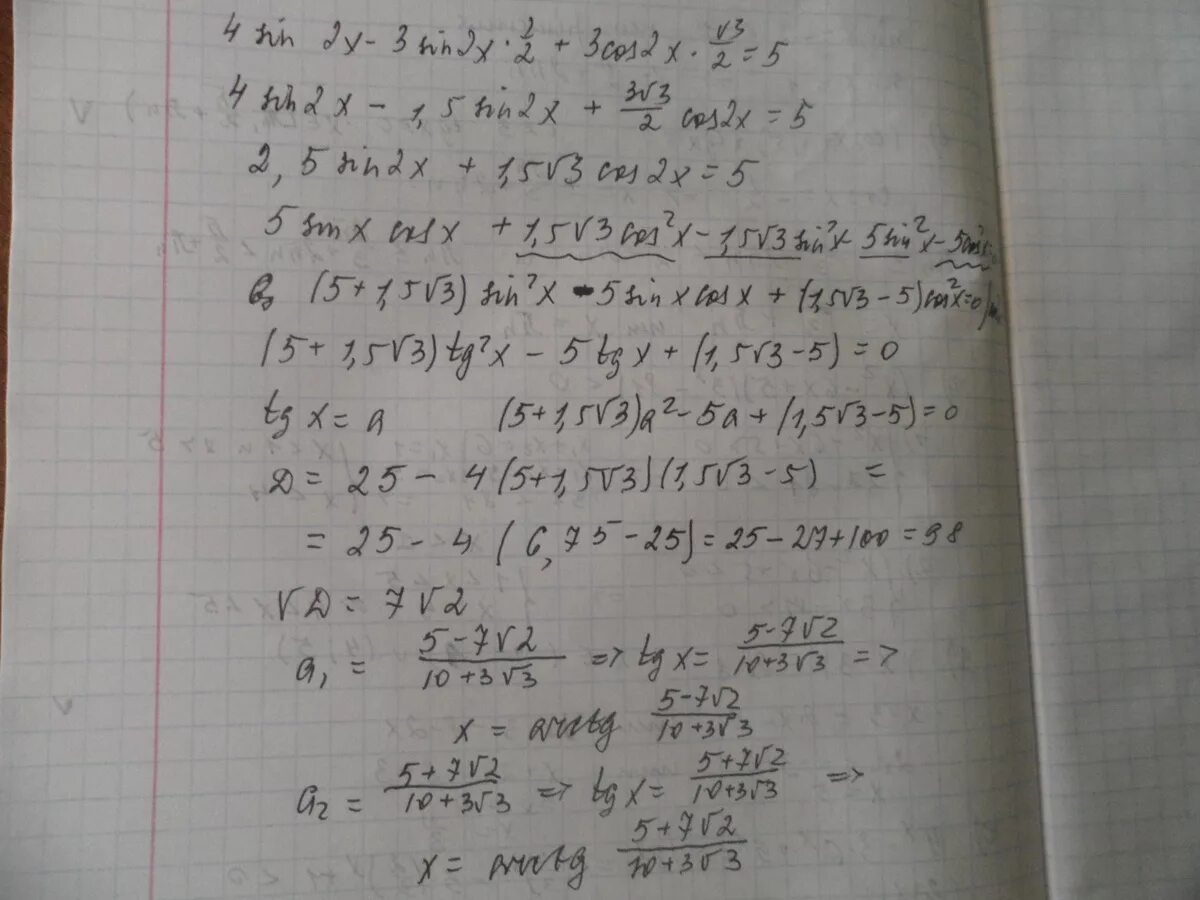 4 sin 2x - 3 sin 2x · 1/2 + 3 cos 2x · √3/2 = 5
4 sin 2x - 1,5 sin 2x + 3√3/2 cos 2x = 5
2,5 sin 2x + 1,5√3 cos 2x = 5
5 sin x cos x + 1,5√3 cos²x - 1,5√3 sin²x - 5 sin²x - 5cos²x
(5 + 1,5√3) sin²x - 5 sin x cos x + (1,5√3 - 5) cos²x = 0
(5 + 1,5√3) tg²x - 5 tg x + (1,5√3 - 5) = 0
tg x = a (5+1,5√3)a² - 5a + (1,5√3 - 5) = 0
D = 25 - 4(5+1,5√3)(1,5√3 - 5) =
= 25 - 4 (6,75 - 25) = 25 - 27 + 100 = 98
√D = 7√2
a₁ = (5 - 7√2)/(10 + 3√3) => tg x = (5 - 7√2)/(10 + 3√3) =>
x = arctg (5 - 7√2)/(10 + 3√3)
a₂ = (5 + 7√2)/(10 + 3√3) => tg x = (5 + 7√2)/(10 + 3√3) =>
x = arctg (5 + 7√2)/(10 + 3√3)